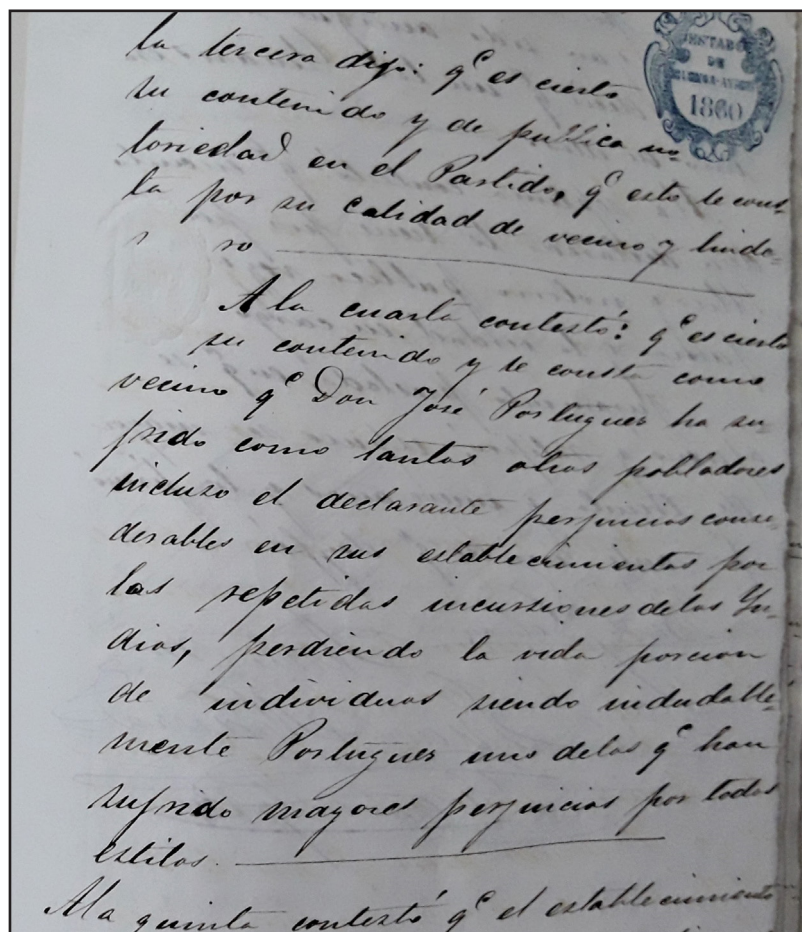 la tercera dijo: q.e es cierto
su contenido y de publica no
toriedad en el Partido, q.e esto le cons
ta por su calidad de vecino y linde
ro
A la cuarta contestó: q.e es cierto
su contenido y le consta como
vecino q.e Don José Portugues ha su
frido como tantos otros pobladores
incluso el declarante perjuicios consi
derables en sus establecimientos por
las repetidas incursiones de los In
dios, perdiendo la vida porcion
de individuos siendo indudable
mente Portugues uno de los q.e han
sufrido mayores perjuicios por todos
estilos.
A la quinta contestó q.e el establecimiento
ESTADO
DE
BUENOS-AYRES
1860